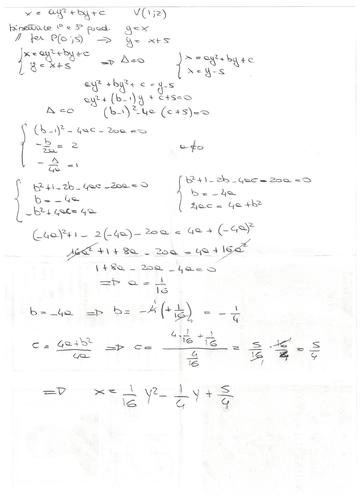 x = ay²+by+c V(1;2)
bisettrice 1° e 3° quad. y=x
// per P(0;5) → y = x+5
{ x = ay²+by+c
y = x+5 ⇒ Δ=0 { x = ay²+by+c
x = y-5
ay²+by+c = y-5
ay²+(b-1)y+c+5=0
Δ=0 (b-1)²-4a(c+5)=0
{ (b-1)²-4ac-20a=0
-b/2a = 2 a≠0
-Δ/4a = 1
{ b²+1-2b-4ac-20a=0 { b²+1-2b-4ac-20a=0
b = -4a b = -4a
-b²+4ac=4a 4ac = 4a+b²
(-4a)²+1-2(-4a)-20a = 4a+(-4a)²
16a²+1+8a-20a = 4a+16a²
1+8a-20a-4a=0
⇒ a = 1/16
b = -4a ⇒ b = -4(+1/16) = -1/4
c = (4a+b²)/4a ⇒ c = (4·1/16+1/16)/(4/16) = 5/16 · 16/4 = 5/4
⇒ x = 1/16 y² - 1/4 y + 5/4